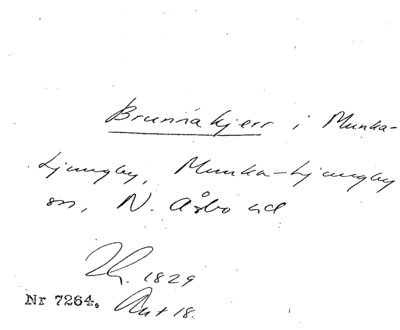 Brunnakjerr i Munka-
Ljungby, Munka-Ljungby
sn, N. Åsbo hd
1829
Nr 7264. Akt 18.